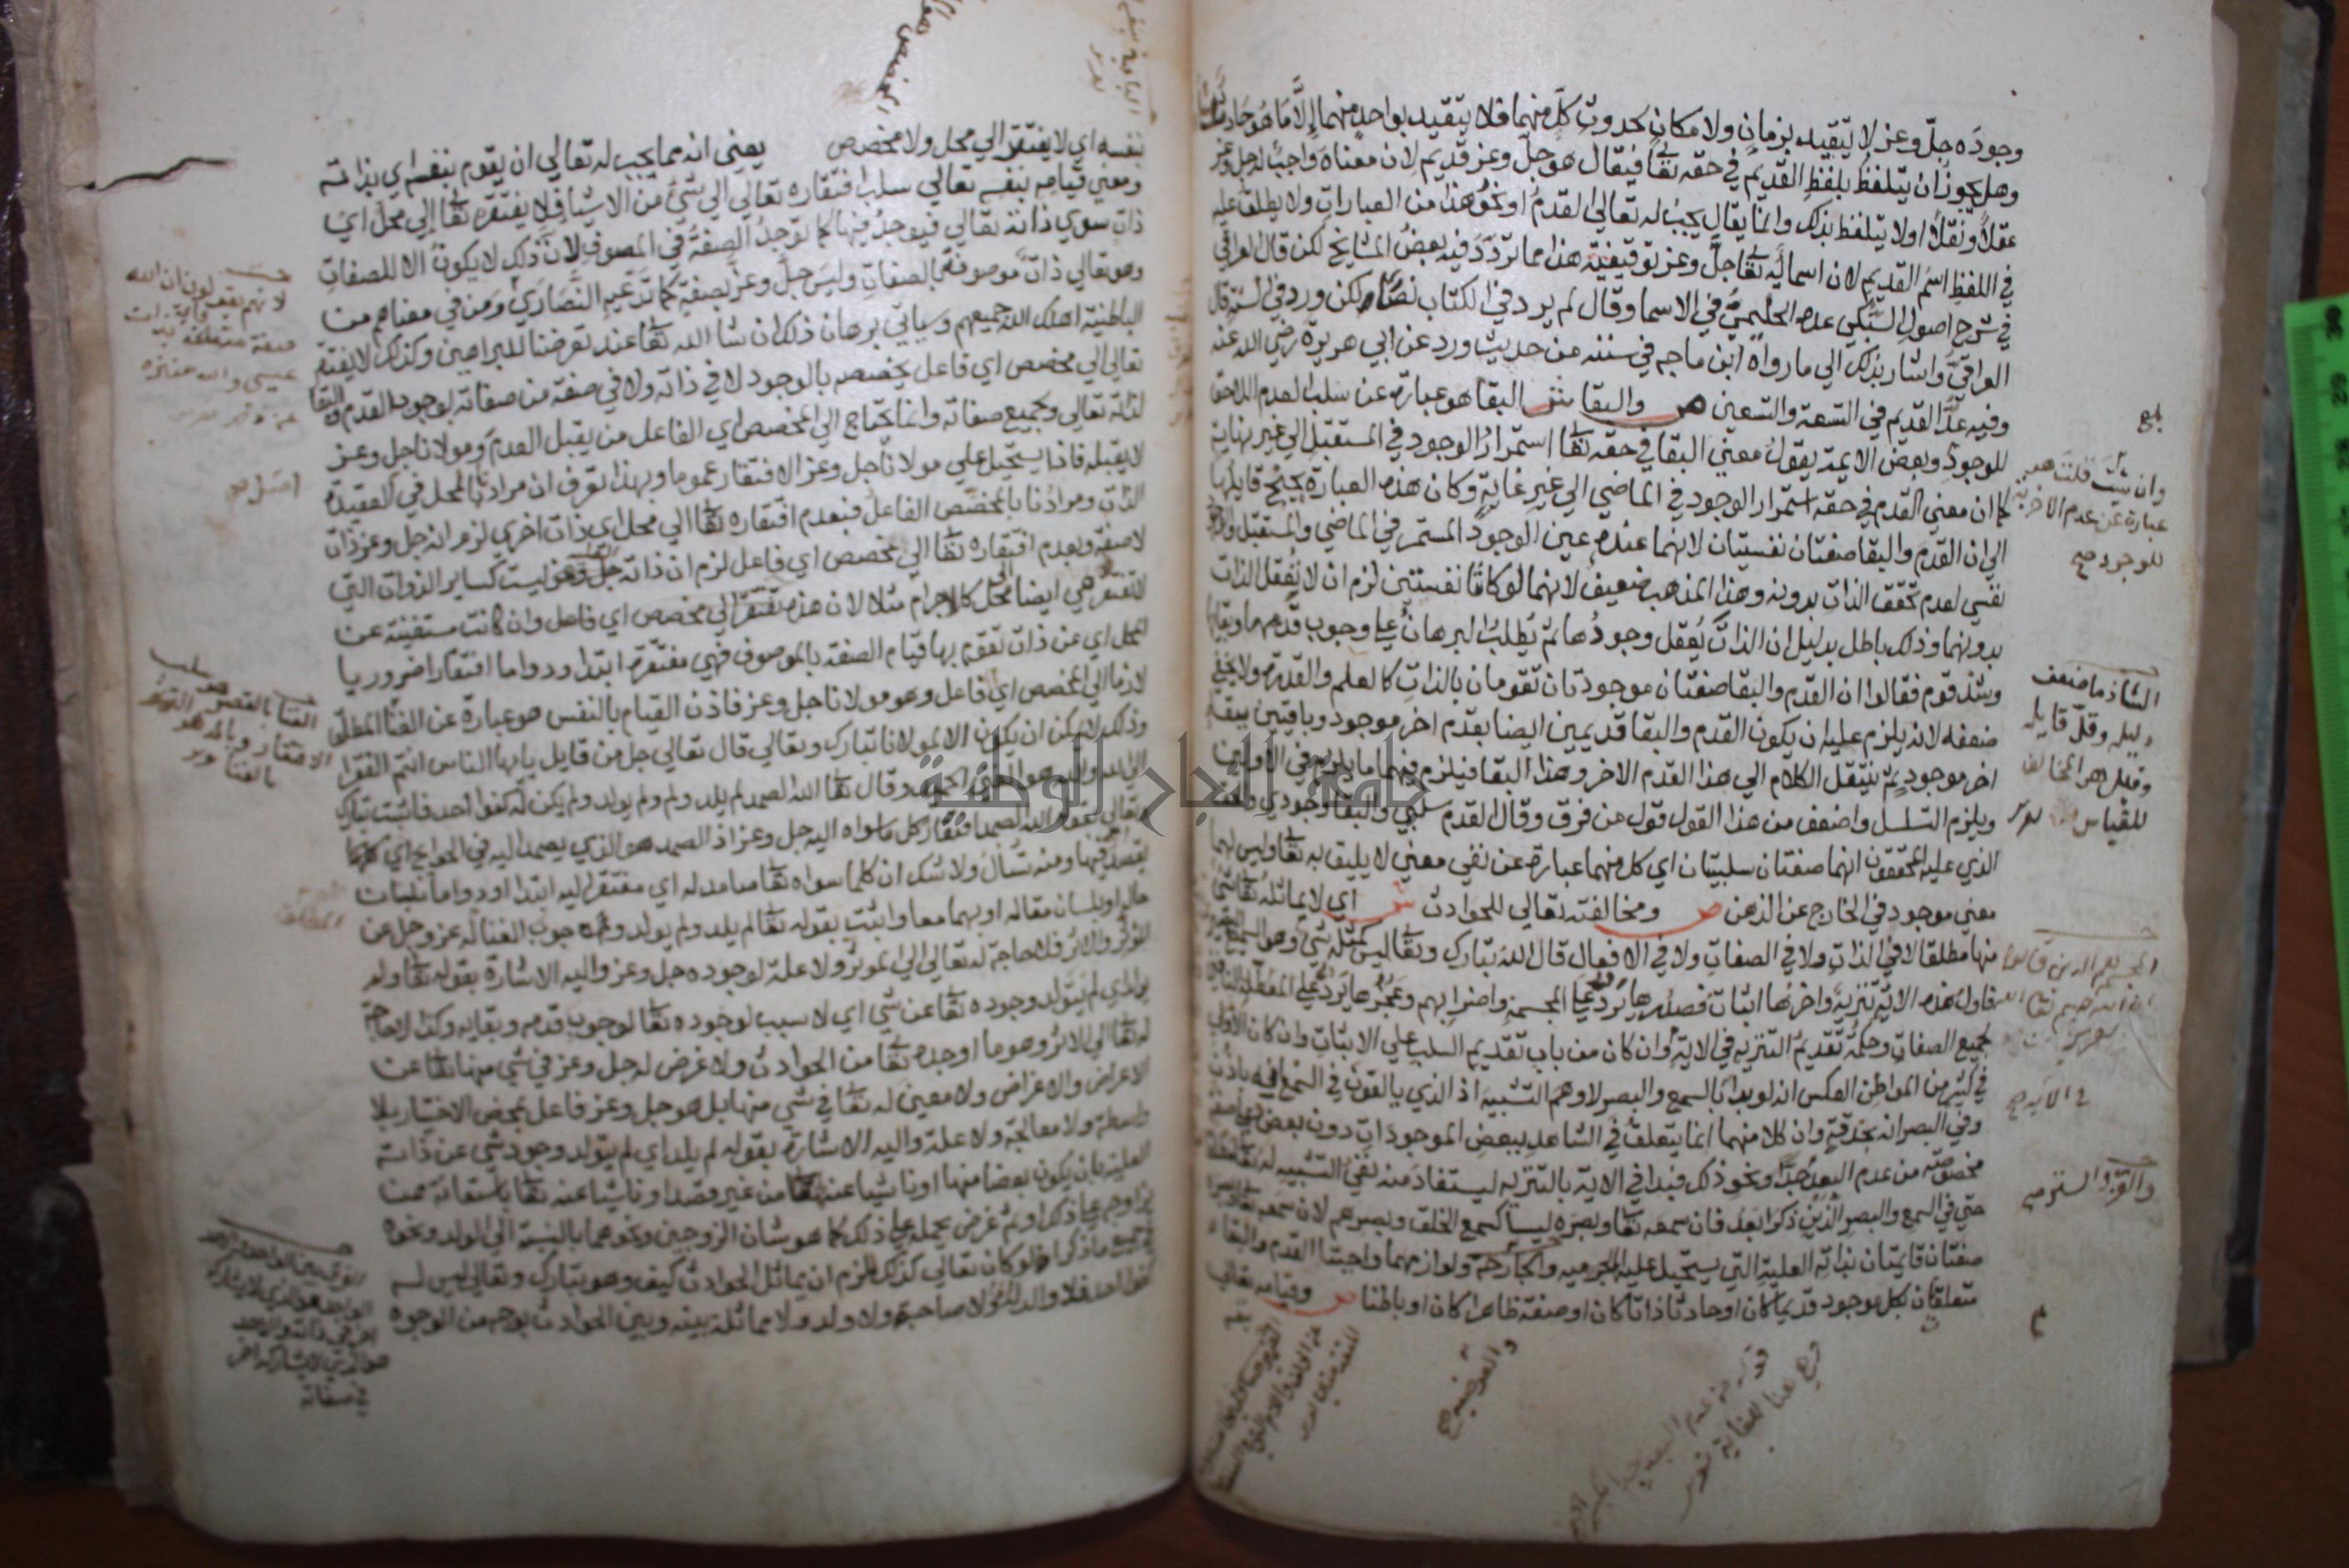 وجوده جل وعز لا يتقيد بزمان ولا مكان لحدوث كل منهما فلا يتقيد بواحد منهما الا ما هو حادث
وهل يجوز ان يتلفظ بلفظ القديم في حقه تعا فيقال هو جل وعز قديم لان معناه واجب له جل وعز
عقلا ونقلا او لا يتلفظ بذلك وانما يقال يجب له تعالى القدم او نحو هذا من العبارات ولا يطلق عليه
في اللفظ اسم القديم لان اسمائه تعا جل وعز توقيفية هذا مما تردد فيه بعض المشايخ لكن قال العراقي
في شرح اصول السبكي عده الحليمي في الاسما وقال لم يرد في الكتاب نصا ولكن ورد في السنة قال
العراقي واشار بذلك الي ما رواه ابن ماجه في سننه من حديث ورد عن ابي هريرة رضي الله عنه
وفيه عد القديم في التسعة والتسعين ص والبقا ش البقا هو عبارة عن سلب العدم اللاحق
للوجود وبعض الايمة يقول معني البقا في حقه تعا استمرار الوجود في المستقبل الي غير نهاية
كما ان معني القدم في حقه استمرار الوجود في الماضي الي غير غاية وكان هذه العبارة يجنح قايلها
الي ان القدم والبقا صفتان نفسيتان لانهما عندهم عين الوجود المستمر في الماضي والمستقبل والوجود
نفسي لعدم تحقق الذات بدونه وهذا المذهب ضعيف لانهما لو كانتا نفسيتين لزم ان لا تعقل الذات
بدونهما وذلك باطل بدليل ان الذات يعقل وجودها ثم يطلب البرهان علي وجوب قدمها وبقايها
وشذ قوم فقالوا ان القدم والبقا صفتان موجودتان تقومان بالذات كالعلم والقدرة ولا يخفي
ضعفه لانه يلزم عليه ان يكون القدم والبقا قديمين ايضا بقدم اخر موجود وباقيين ببقا
اخر موجود ثم ينتقل الكلام الي هذا القدم الاخر وهذا البقا فيلزم فيهما ما يلزم في الاولين
ويلزم التسلسل واضعف من هذا القول قول من فرق وقال القدم سلبي والبقا وجودي والحق
الذي عليه المحققون انهما صفتان سلبيتان اي كل منهما عبارة عن نفي معني لا يليق به تعا وليس لهما
معني موجود في الخارج عن الذهن ص ومخالفته تعالي للحوادث ش اي لا يماثله تعا شي
منها مطلقا لا في الذات ولا في الصفات ولا في الافعال قال الله تبارك وتعا ليس كمثله شي وهو السميع البصير
فاول هذه الاية تنزيه واخرها اثبات فصدرها يرد علي المجسمة واضرابهم وعجزها يرد علي المعطلة النافين
لجميع الصفات وحكمة تقديم التنزيه في الاية وان كان من باب تقديم السلب علي الاثبات وان كان الاولي
في كثير من المواطن العكس انه لو بدا بالسمع والبصر لاوهم التشبيه اذ الذي يالفون في السمع انه باذن
وفي البصر انه بحدقة وان كلا منهما انما يتعلق في الشاهد ببعض الموجودات دون بعض
مخصوصة من عدم البعد جدا ونحو ذلك فبدا في الاية بالتنزيه ليستفاد منه نفي التشبيه له تعا
حتي في السمع والبصر الذين ذكرا بعد فان سمعه تعا وبصره ليسا كسمع الخلق وبصرهم لان سمعه تعا
صفتان قايمتان بذاته العلية التي يستحيل عليها الجرمية والجارحة ولوازمهما واجبتا القدم والبقاء
متعلقان بكل موجود قديما كان او حادثا ذاتا كان او صفة ظاهرا كان او باطنا ص وقيامه تعالي
وان شيت قلت هو
عبارة عن عدم الاخرية
للوجود صح
الشاذ ما ضعف
دليله وقل قايله
وقيل هو المخالف
للقياس
في الاية صح
نفسه اي لا يفتقر الي محل ولا مخصص يعني انه مما يجب له تعالي ان يقوم بنفسه اي بذاته
ومعني قيامه بنفسه تعالي سلب افتقاره تعالي الي شي من الاشيا فلا يفتقر تعا الي محل اي
ذات سوي ذاته تعالي فيوجد فيها كما توجد الصفة في الموصوف لان ذلك لا يكون الا للصفات
وهو تعالي ذات موصوفة بالصفات وليس جل وعز بصفة كما تدعيه النصاري ومن في معناهم من
الباطنية اهلك الله جميعهم وسياتي برهان ذلك ان شا الله تعا عند تعرضنا للبراهين وكذلك لا يفتقر
تعالي الي مخصص اي فاعل يخصصه بالوجود لا في ذاته ولا في صفة من صفاته لوجود القدم والبقا
لذاته تعالي ولجميع صفاته وانما يحتاج الي المخصص اي الفاعل من يقبل العدم ومولانا جل وعز
لا يقبله فاذا يستحيل علي مولانا جل وعز الافتقار عموما وبهذا تعرف ان مرادنا بالمحل في العقيدة
الذات ومرادنا بالمخصص الفاعل فبعدم افتقاره تعا الي محل اي ذات اخري لزم انه جل وعز ذات
لا صفة وبعدم افتقاره تعا الي مخصص اي فاعل لزم ان ذاته جل وعز ليست كساير الذوات التي
لا تفتقر هي ايضا الي محل كالاجرام مثلا لان هذه تفتقر الي مخصص اي فاعل وان كانت مستغنية عن
المحل اي عن ذات تقوم بها قيام الصفة بالموصوف فهي مفتقرة ابتدا ودواما افتقارا ضروريا
لازما الي المخصص اي فاعل وهو مولانا جل وعز فاذن القيام بالنفس هو عبارة عن الغنا المطلق
وذلك لا يمكن ان يكون الا لمولانا تبارك وتعالي قال تعالي جل من قايل يايها الناس انتم الفقرا
الي الله والله هو الغني الحميد وقال تعا الله الصمد لم يلد ولم يولد ولم يكن له كفوا احد فاثبت تبارك
وتعالي بقوله الله الصمد افتقار كل ما سواه اليه جل وعز اذ الصمد هو الذي يصمد اليه في الحوايج اي
يقصد فيها ومنه تسال ولا شك ان كل ما سواه تعا صامد له اي مفتقر اليه ابتدا ودواما بلسان
حاله او بلسان مقاله او بهما معا واثبت بقوله تعا لم يلد ولم يولد وجوب الغنا له عز وجل عن
المؤثر والاثر فلا حاجة له تعالي الي مؤثر ولا علة لوجوده جل وعز واليه الاشارة بقوله تعا ولم
يولد اي لم يتولد وجوده تعا عن شي اي لا سبب لوجوده تعا لوجوب قدمه وبقايه وكذا لا حاجة
له تعالي الي الاثر وهو ما اوجده تعا من الحوادث ولا غرض له جل وعز في شي منها تعا عن
الاعراض والاغراض ولا معين له تعا في شي منها بل هو جل وعز فاعل بمحض الاختيار بلا
واسطة ولا معالجة ولا علة واليه الاشارة بقوله لم يلد اي لم يتولد وجود شي عن ذاته
العلية بان يكون بعضا منها او ناشيا عنها من غير قصد او ناشيا عنه تعا باستعانة ممن
يزاوجه علي ذلك او ثم غرض يحمله علي ذلك كما هو شان الزوجين ونحوهما بالنسبة الي الولد ونحوه
جميع ما ذكر فلو كان تعالي كذلك لزم ان يماثل الحوادث كيف وهو تبارك وتعالي ليس له
كفوا احد فلا والد له ولا صاحبة ولا ولد ولا مماثلة بينه وبين الحوادث بوجه من الوجوه
جامعة النجاح الوطنية